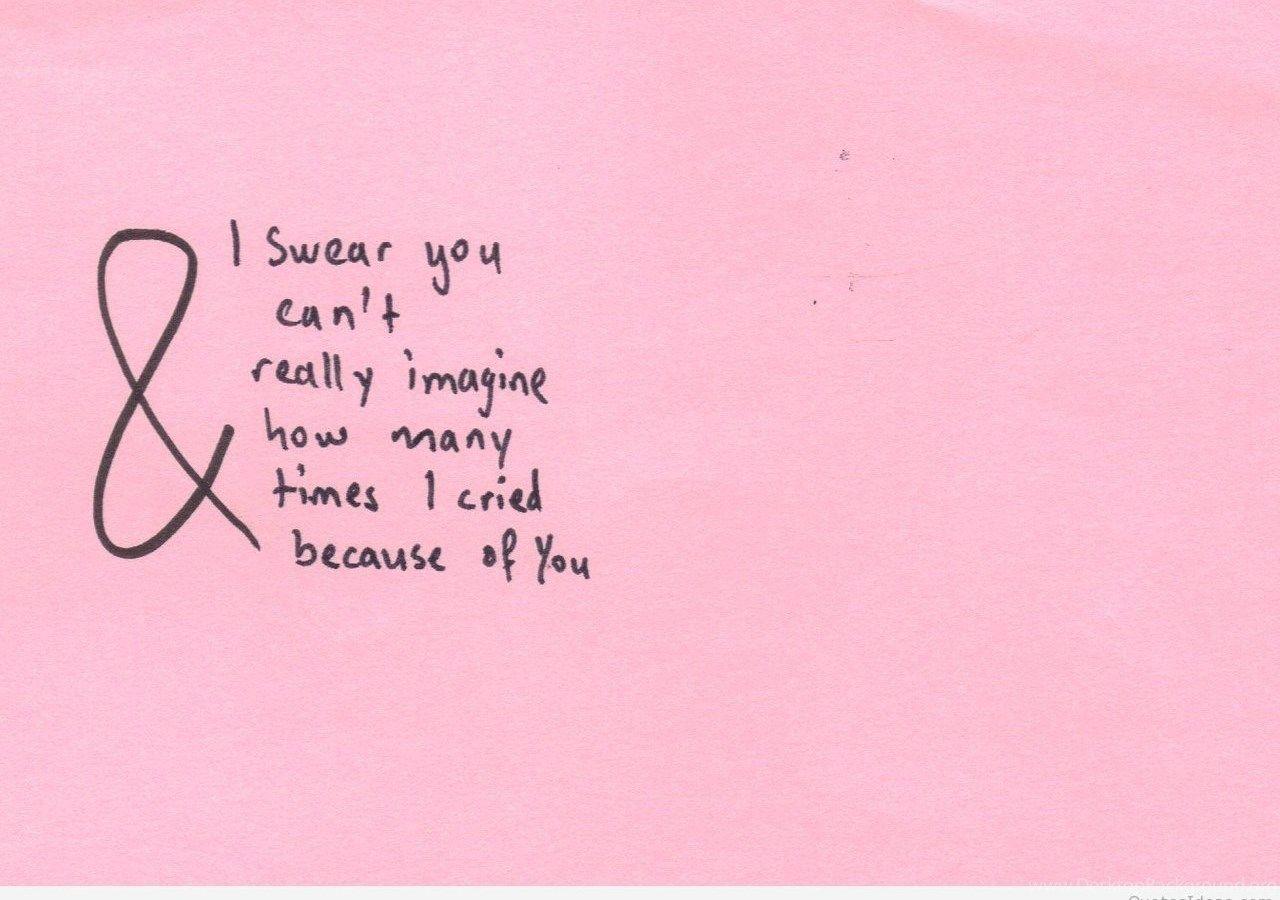 & I swear you
can't
really imagine
how many
times I cried
because of You
www.DesktopBackground.org
QuotesIdeas.com